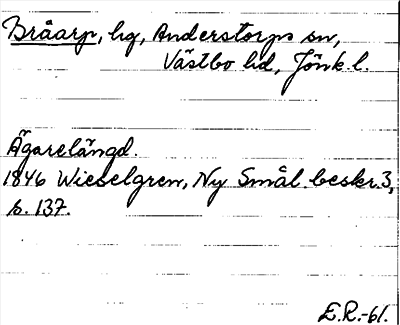 Bråarp, hg, Anderstorps sn,
Västbo hd, Jönk. l.
Ägarelängd.
1846 Wieselgren, Ny Smål. beskr. 3,
s. 137.
E.R.-61.